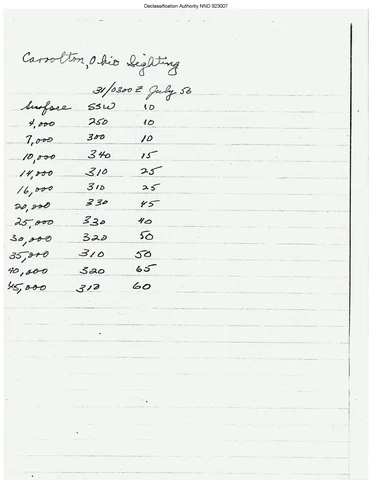 Declassification Authority NND 923007
Carrolton, Ohio Sighting
31/0300 Z July 56
Surface SSW 10
4,000 250 10
7,000 300 10
10,000 340 15
14,000 310 25
16,000 310 25
20,000 330 45
25,000 330 40
30,000 320 50
35,000 310 50
40,000 320 65
45,000 310 60